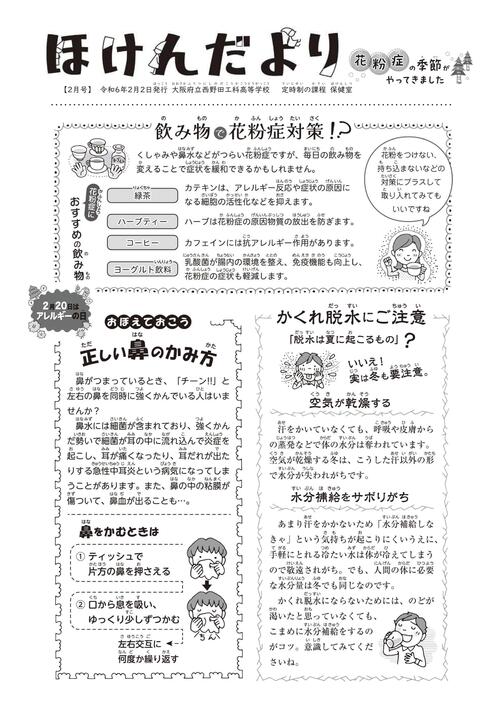 ほけんだより
花粉症の季節が
やってきました
【2月号】 令和6年2月2日発行 大阪府立西野田工科高等学校 定時制の課程 保健室
飲み物で花粉症対策!?
くしゃみや鼻水などがつらい花粉症ですが、毎日の飲み物を
変えることで症状を緩和できるかもしれません。
花粉症に
おすすめの飲み物
緑茶
カテキンは、アレルギー反応や症状の原因に
なる細胞の活性化などを抑えます。
ハーブティー
ハーブは花粉症の原因物質の放出を防ぎます。
コーヒー
カフェインには抗アレルギー作用があります。
ヨーグルト飲料
乳酸菌が腸内の環境を整え、免疫機能も向上し、
花粉症の症状も軽減します。
花粉をつけない、
持ち込まないなどの
対策にプラスして
取り入れてみても
いいですね
2月20日は
アレルギーの日
おぼえておこう
正しい鼻のかみ方
鼻がつまっているとき、「チーン!!」と
左右の鼻を同時に強くかんでいる人はいま
せんか?
鼻水には細菌が含まれており、強くかん
だ勢いで細菌が耳の中に流れ込んで炎症を
起こし、耳が痛くなったり、耳だれが出た
りする急性中耳炎という病気になってしま
うことがあります。また、鼻の中の粘膜が
傷ついて、鼻血が出ることも…。
鼻をかむときは
① ティッシュで
片方の鼻を押さえる
② 口から息を吸い、
ゆっくり少しずつかむ
左右交互に
何度か繰り返す
かくれ脱水にご注意
「脱水は夏に起こるもの」?
いいえ!
実は冬も要注意。
空気が乾燥する
汗をかいていなくても、呼吸や皮膚から
の蒸発などで体の水分は奪われています。
空気が乾燥する冬は、こうした汗以外の形
で水分が失われがちです。
水分補給をサボりがち
あまり汗をかかないため「水分補給しな
きゃ」という気持ちが起こりにくいうえに、
手軽にとれる冷たい水は体が冷えてしまう
ので敬遠されがち。でも、人間の体に必要
な水分量は冬でも同じなのです。
かくれ脱水にならないためには、のどが
渇いたと思っていなくても、
こまめに水分補給をするの
がコツ。意識してみてくだ
さいね。